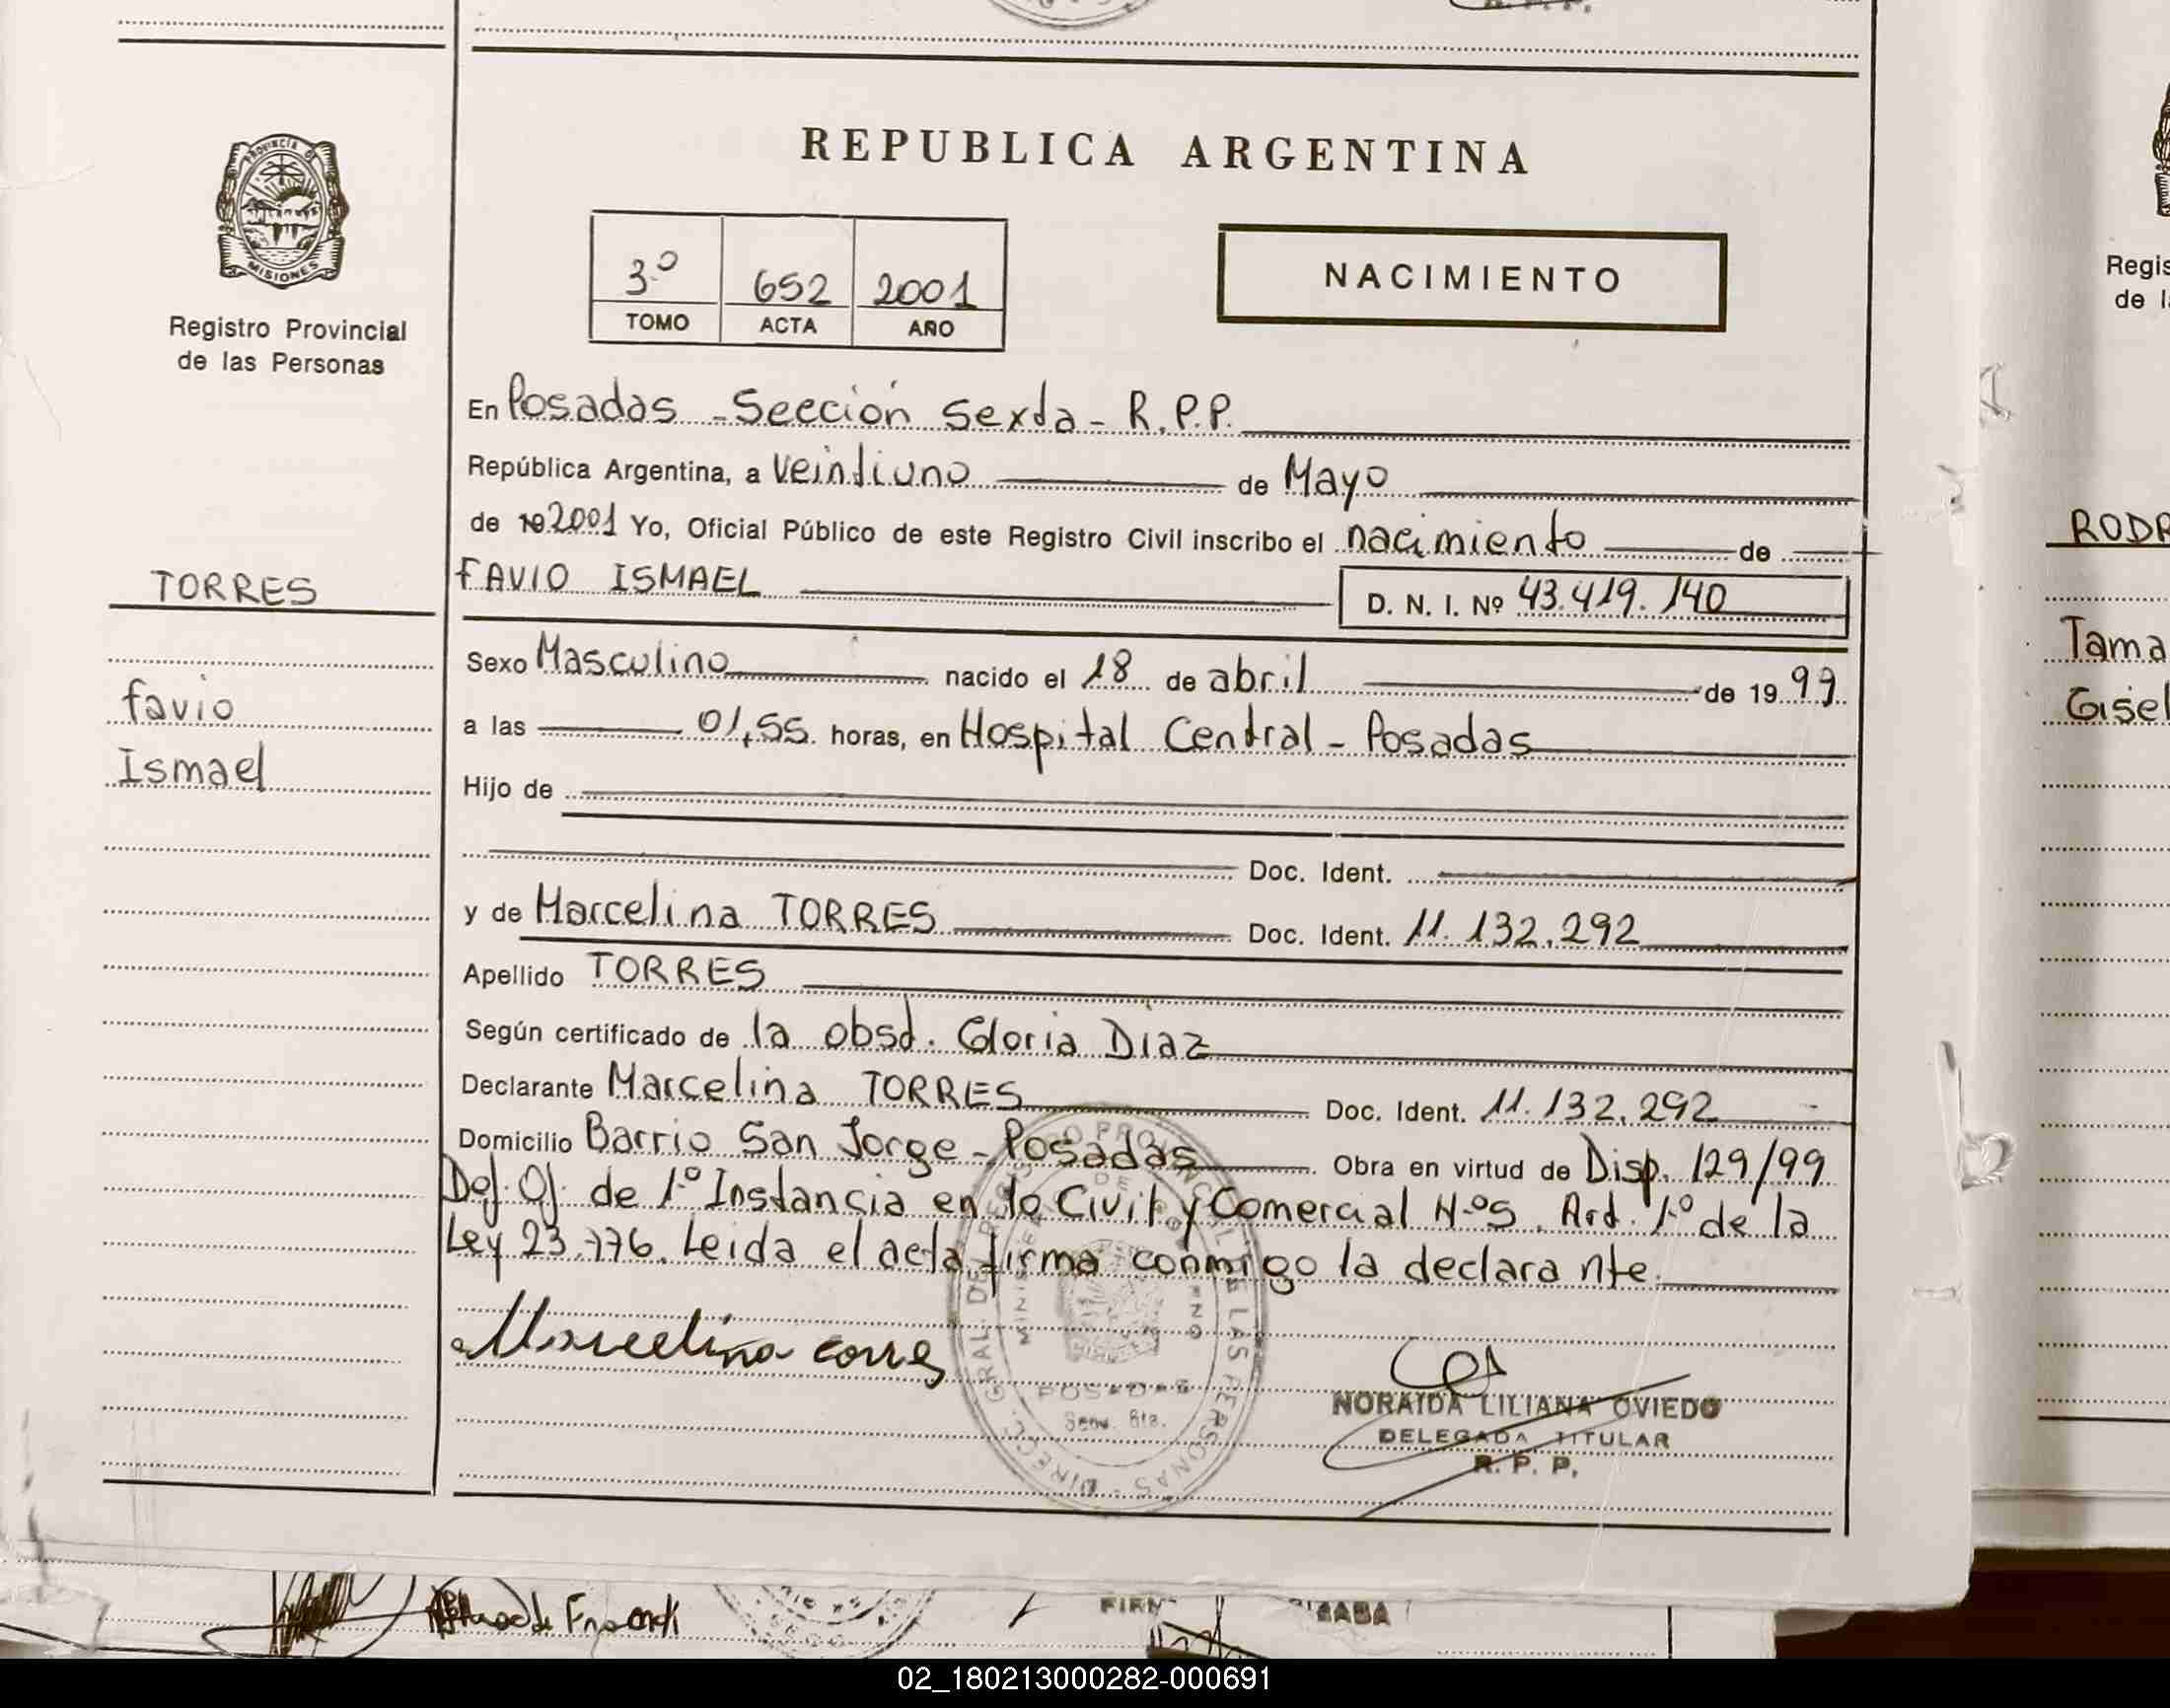 REPUBLICA ARGENTINA
PROVINCIA D
MISIONES
Registro Provincial
de las Personas
3º 652 2001
TOMO ACTA AÑO
NACIMIENTO
En Posadas - Sección Sexta - R.P.P.
República Argentina, a Veintiuno de Mayo
de 19 2001 Yo, Oficial Público de este Registro Civil inscribo el nacimiento de
FAVIO ISMAEL D. N. I. Nº 43.419.140
TORRES
favio
Ismael
Sexo Masculino nacido el 18 de abril de 19 99
a las 01,55 horas, en Hospital Central - Posadas
Hijo de
Doc. Ident.
y de Marcelina TORRES Doc. Ident. 11.132.292
Apellido TORRES
Según certificado de la obst. Gloria Diaz
Declarante Marcelina TORRES Doc. Ident. 11.132.292
Domicilio Barrio San Jorge - Posadas Obra en virtud de Disp. 129/99
Def. Of. de 1º Instancia en lo Civil y Comercial Nº5. Art. 1º de la
Ley 23.776. Leida el acta firma conmigo la declarante.
Marcelina torres
DIRECC. GRAL. DEL REGISTRO PROVINCIAL DE LAS PERSONAS
POSADAS
Secc. 6ta.
NORAIDA LILIANA OVIEDO
DELEGADA TITULAR
R. P. P.
Regis
de l
RODR
Tama
Gisel
02_180213000282-000691